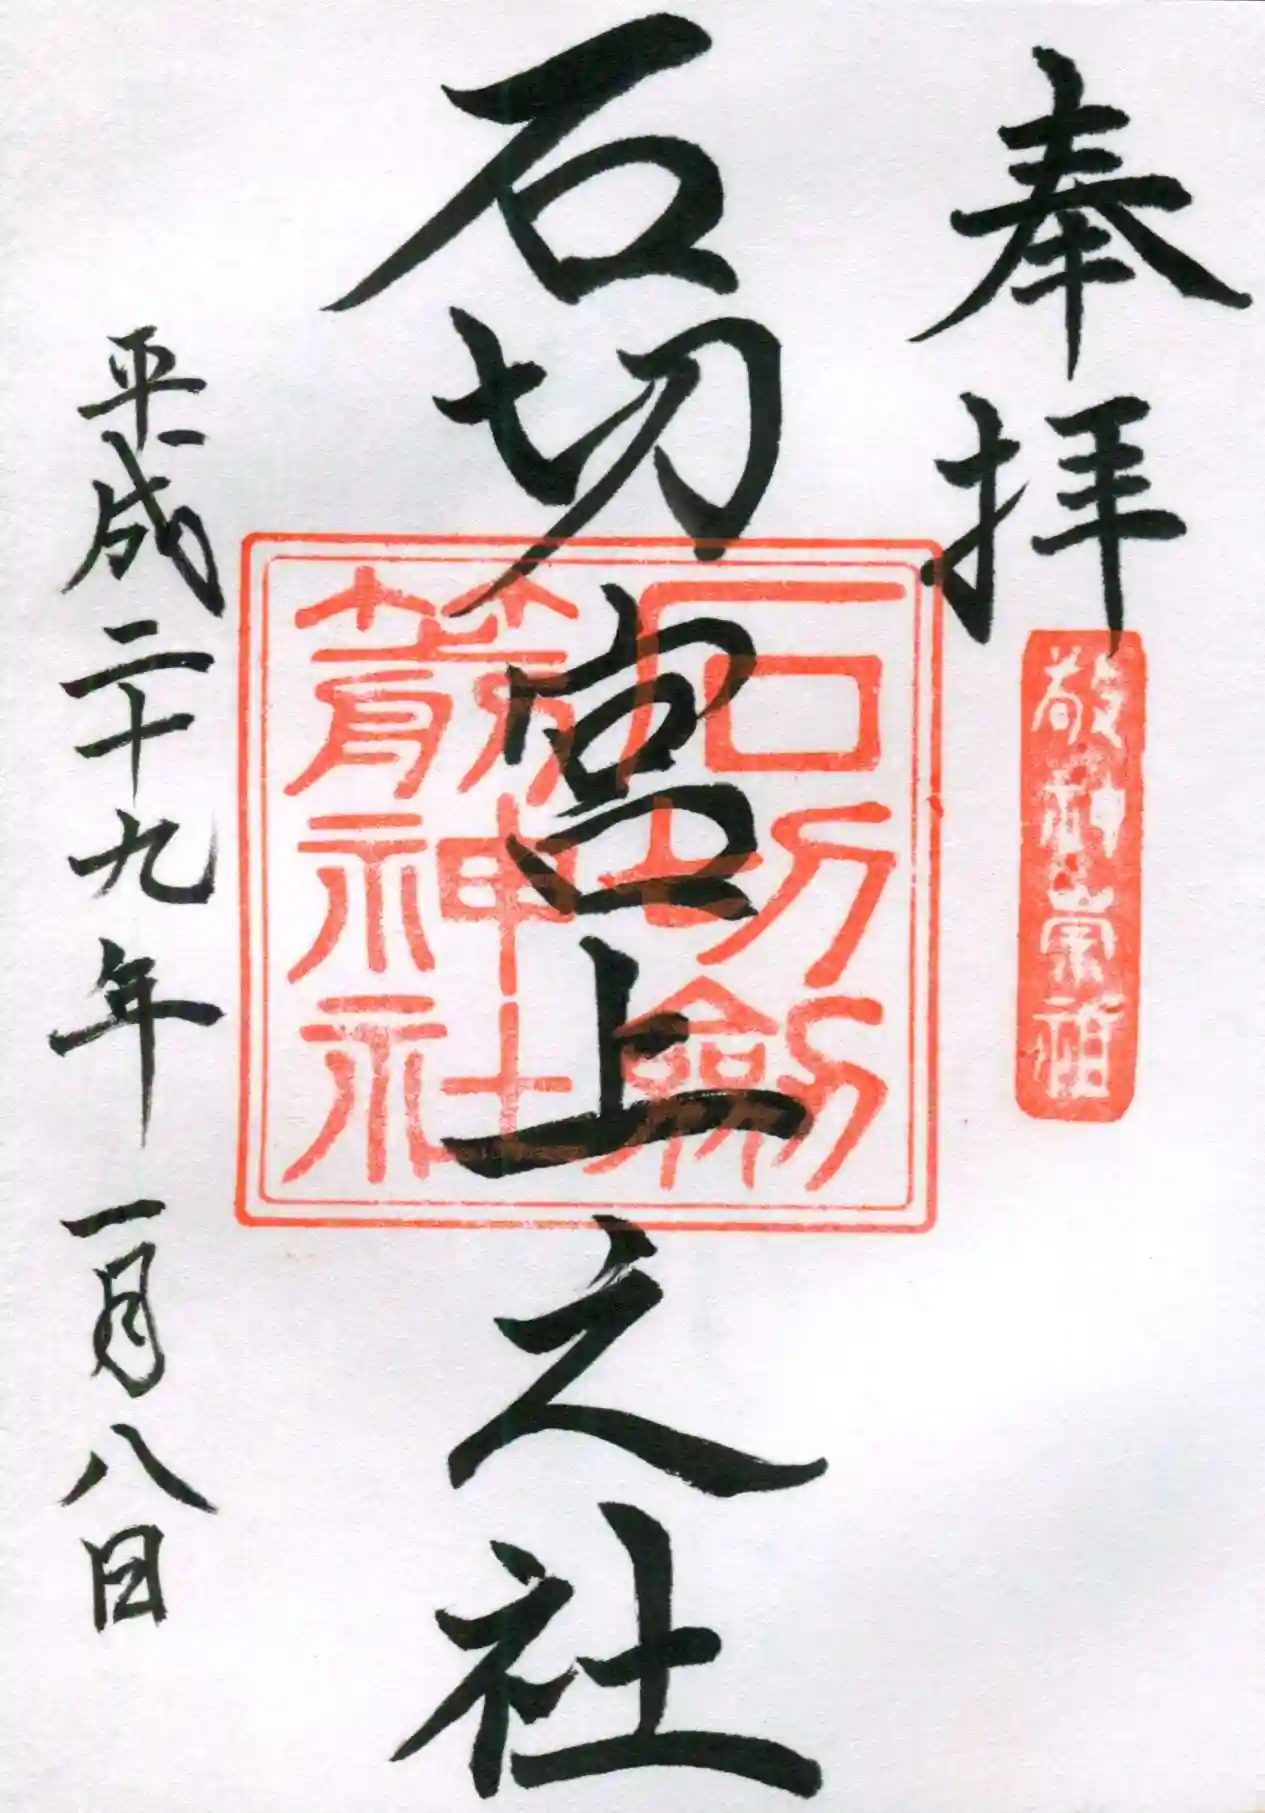 奉拝
敬神崇祖
石切宮上之社
石切劔
箭神社
平成二十九年一月八日